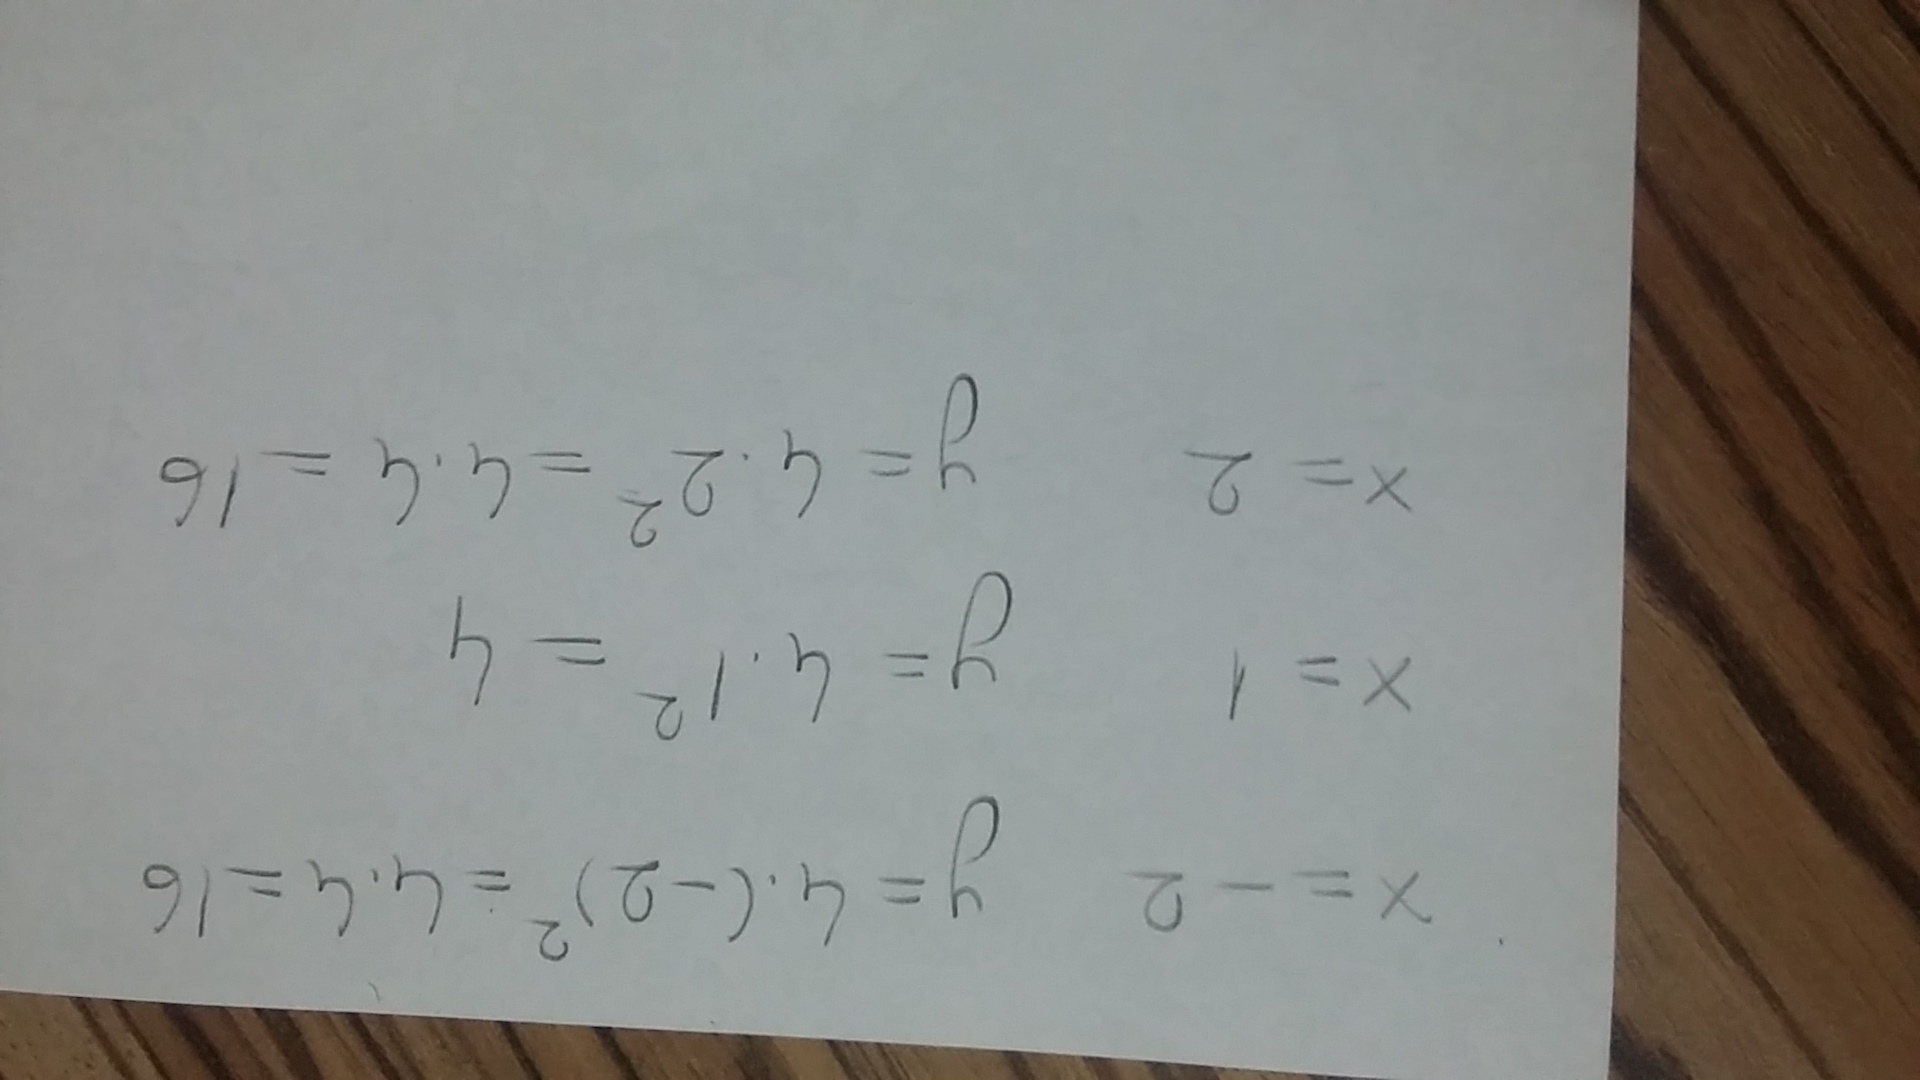 x = -2 y = 4·(-2)² = 4·4 = 16
x = 1 y = 4·1² = 4
x = 2 y = 4·2² = 4·4 = 16